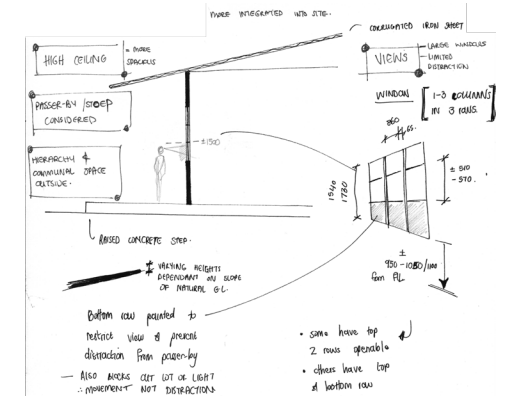 MORE INTEGRATED INTO SITE.
CORRUGATED IRON SHEET
HIGH CEILING
= MORE
SPACIOUS
VIEWS
- LARGE WINDOWS
- LIMITED
DISTRACTION
PASSER-BY / STOEP
CONSIDERED
WINDOW
[1-3 COLUMNS
IN 3 ROWS.]
HIERARCHY &
COMMUNAL SPACE
OUTSIDE.
± 1500
360
65.
1540
1730
± 510
-570.
RAISED CONCRETE STEP.
VARYING HEIGHTS
DEPENDANT ON SLOPE
OF NATURAL G.L.
±
950 - 1050/1100
from FL
Bottom row painted to
restrict view & prevent
distraction from passer-by
— ALSO BLOCKS OUT LOT OF LIGHT
∴ MOVEMENT NOT DISTRACTION
• some have top
2 rows openable
• others have top
& bottom row